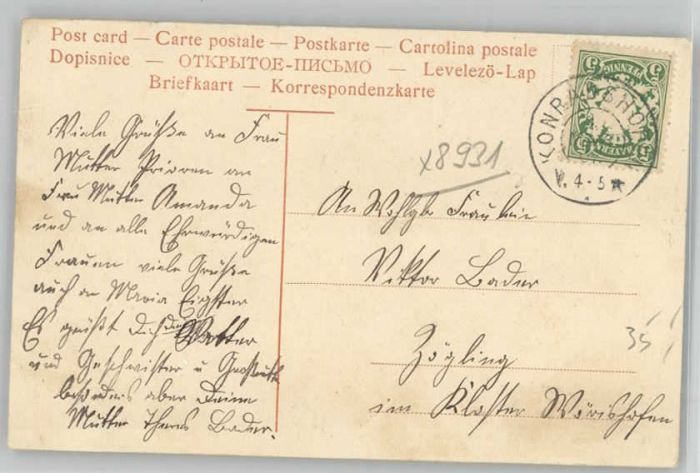 Post card — Carte postale — Postkarte — Cartolina postale
Dopisnice — ОТКРЫТОЕ-ПИСЬМО — Levelező-Lap
Briefkaart — Korrespondenzkarte
Viele Grüße an Frau
Mutter Priorin an
Frau Mutter Amanda
und an alle Ehrwürdigen
Frauen viele Grüße
auch an Maria
Es grüßt Dich dein Vatter
und Geschwister u
besonders aber Deine
Mutter Theres Bader.
x8931
An Wohlgb Fräulein
Viktor Bader
Zögling
im Kloster Wörishofen
35
5 PFENNIG 5
BAYERN
V. 4-5